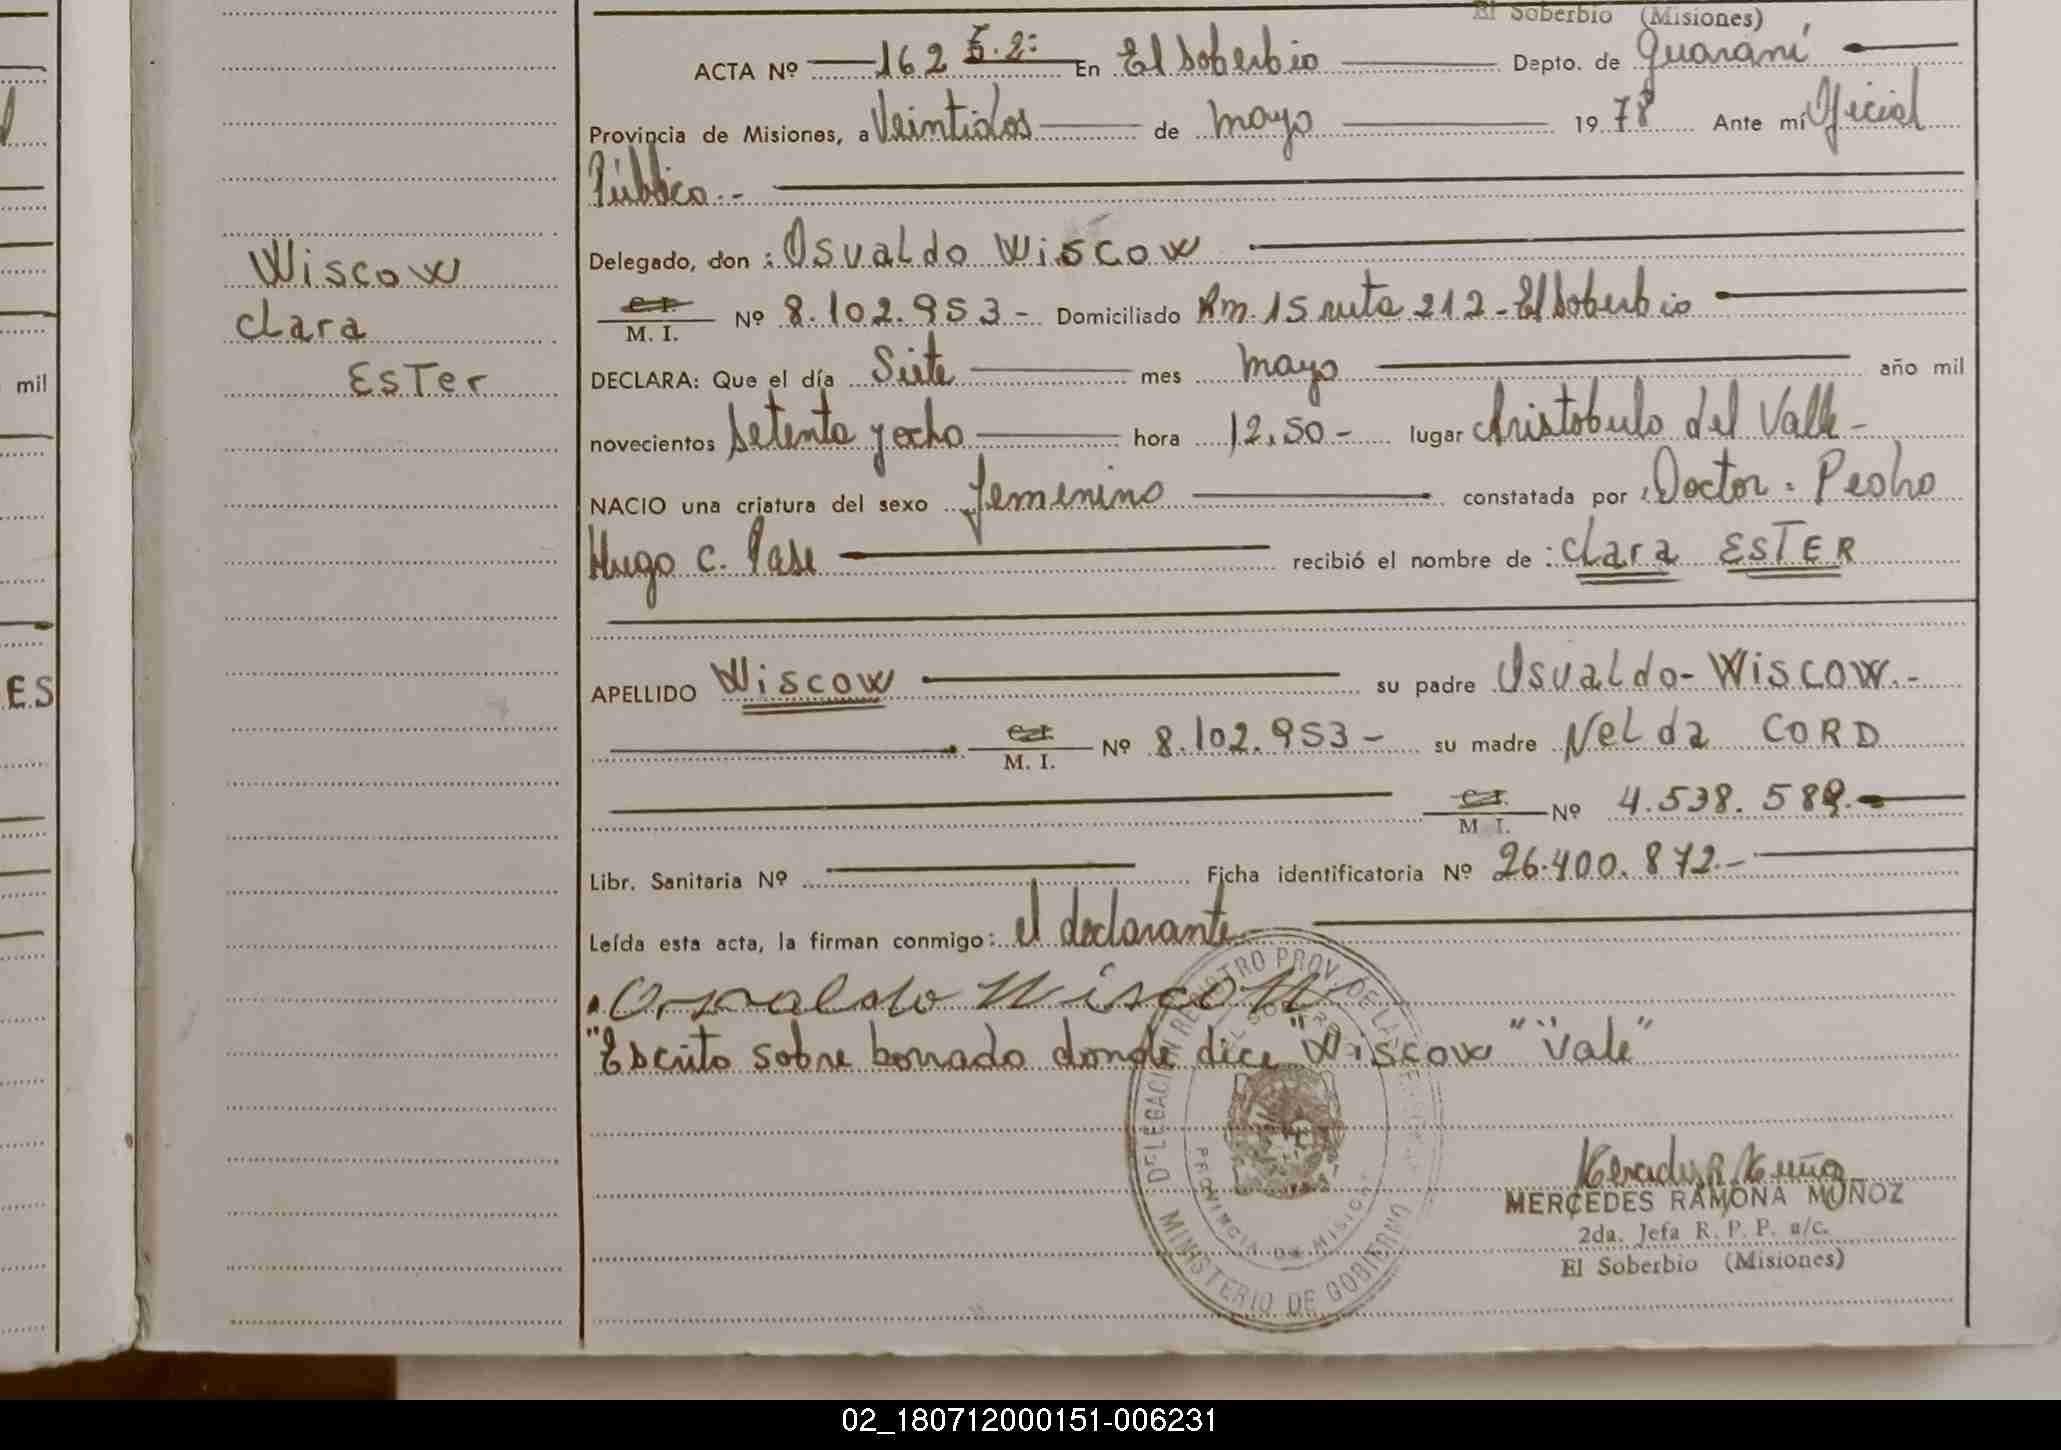 El Soberbio (Misiones)
ACTA Nº 162 En El Soberbio Depto. de Guaraní
Provincia de Misiones, a Veintidos de mayo 1978 Ante mí Oficial
Público.-
Delegado, don : Osvaldo Wiscow
Wiscow
Clara
Ester
C. I. M. I. Nº 8.102.953- Domiciliado Km. 15 ruta 212 - El Soberbio
DECLARA: Que el día Siete mes mayo año mil
novecientos Setenta y ocho hora 12,50- lugar Aristobulo del Valle-
NACIO una criatura del sexo femenino constatada por : Doctor: Pedro
Hugo C. Pase recibió el nombre de : Clara ESTER
APELLIDO Wiscow su padre Osvaldo-Wiscow.-
M. I. Nº 8.102.953- su madre Nelda CORD
M. I. Nº 4.538.589.-
Libr. Sanitaria Nº Ficha identificatoria Nº 26.400.872.-
Leída esta acta, la firman conmigo: el declarante
Osvaldo Wiscow
"Escrito sobre borrado donde dice "Wiscow" "Vale"
DELEGACION REGISTRO PROV. DE LAS
EL SOBERBIO
PROVINCIA DE MISIONES
MINISTERIO DE GOBIERNO
MERCEDES RAMONA MUÑOZ
2da. Jefa R. P. P. a/c.
El Soberbio (Misiones)
mil
ES
02_180712000151-006231